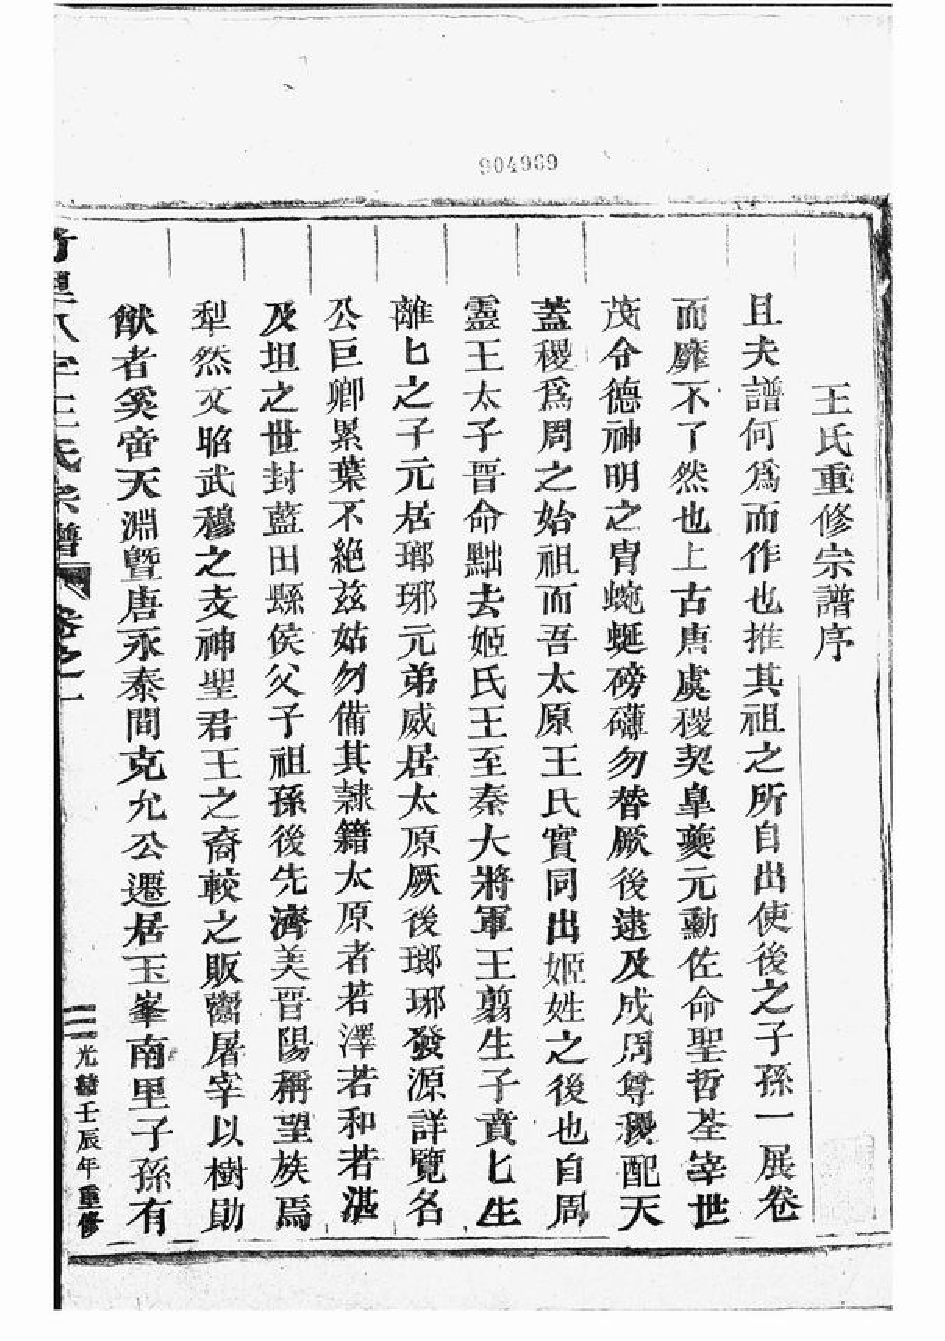 904969
王氏重修宗譜序
且夫譜何爲而作也推其祖之所自出使後之子孫一展卷
而靡不了然也上古唐虞稷契皐夔元勳佐命聖哲荃宰世
茂令德神明之冑蜿蜒磅礴勿替厥後逮及成周尊稷配天
蓋稷爲周之始祖而吾太原王氏實同出姬姓之後也自周
靈王太子晋命黜去姬氏王至秦大將軍王翦生子賁匕生
離匕之子元居瑯琊元弟威居太原厥後瑯琊發源詳覽名
公巨卿累葉不絶茲姑勿備其隷籍太原者若澤若和若湛
及坦之世封藍田縣侯父子祖孫後先濟美晋陽稱望族焉
犁然文昭武穆之支神聖君王之裔較之販鬻屠宰以樹勛
猷者奚啻天淵曁唐永泰間克允公遷居玉峯南里子孫有
王氏宗譜 卷之一 光緖壬辰年重修